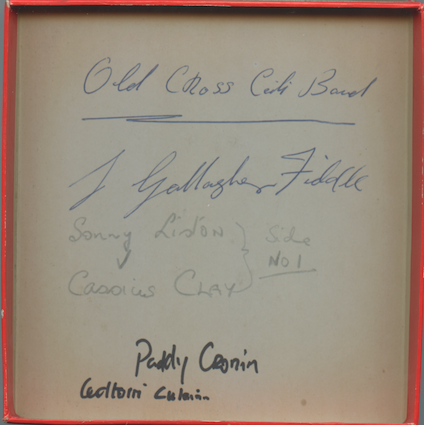 Old Cross Ceili Band
J Gallagher Fiddle
Sonny Liston
v
Cassius Clay
Side
No 1
Paddy Cronin
Ceoltoiri